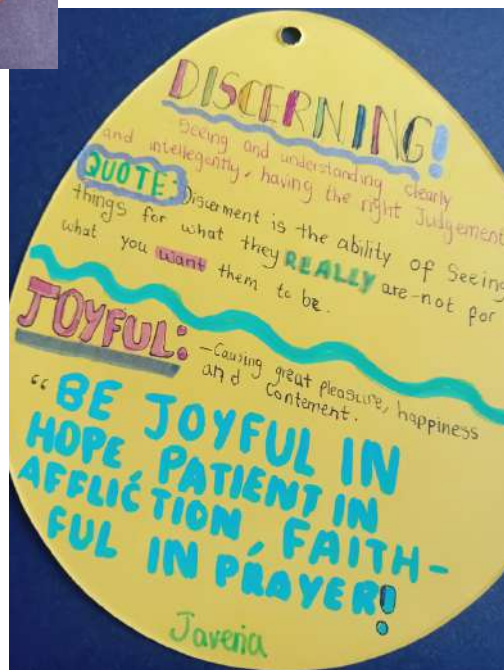 DISCERNING!
- Seeing and understanding clearly
and intellegently, having the right Judgement
QUOTE: Discerment is the ability of Seeing
things for what they REALLY are - not for
what you want them to be.
JOYFUL:
- Causing great pleasure, happiness
and Contement.
"BE JOYFUL IN
HOPE, PATIENT IN
AFFLICTION, FAITH-
FUL IN PRAYER!
Javeria